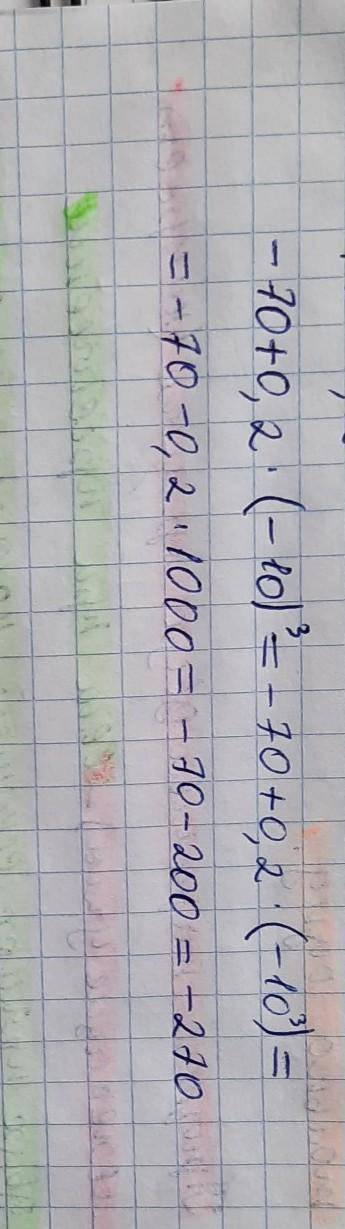 -70+0,2·(-10)³=-70+0,2·(-10³)=
=-70-0,2·1000=-70-200=-270